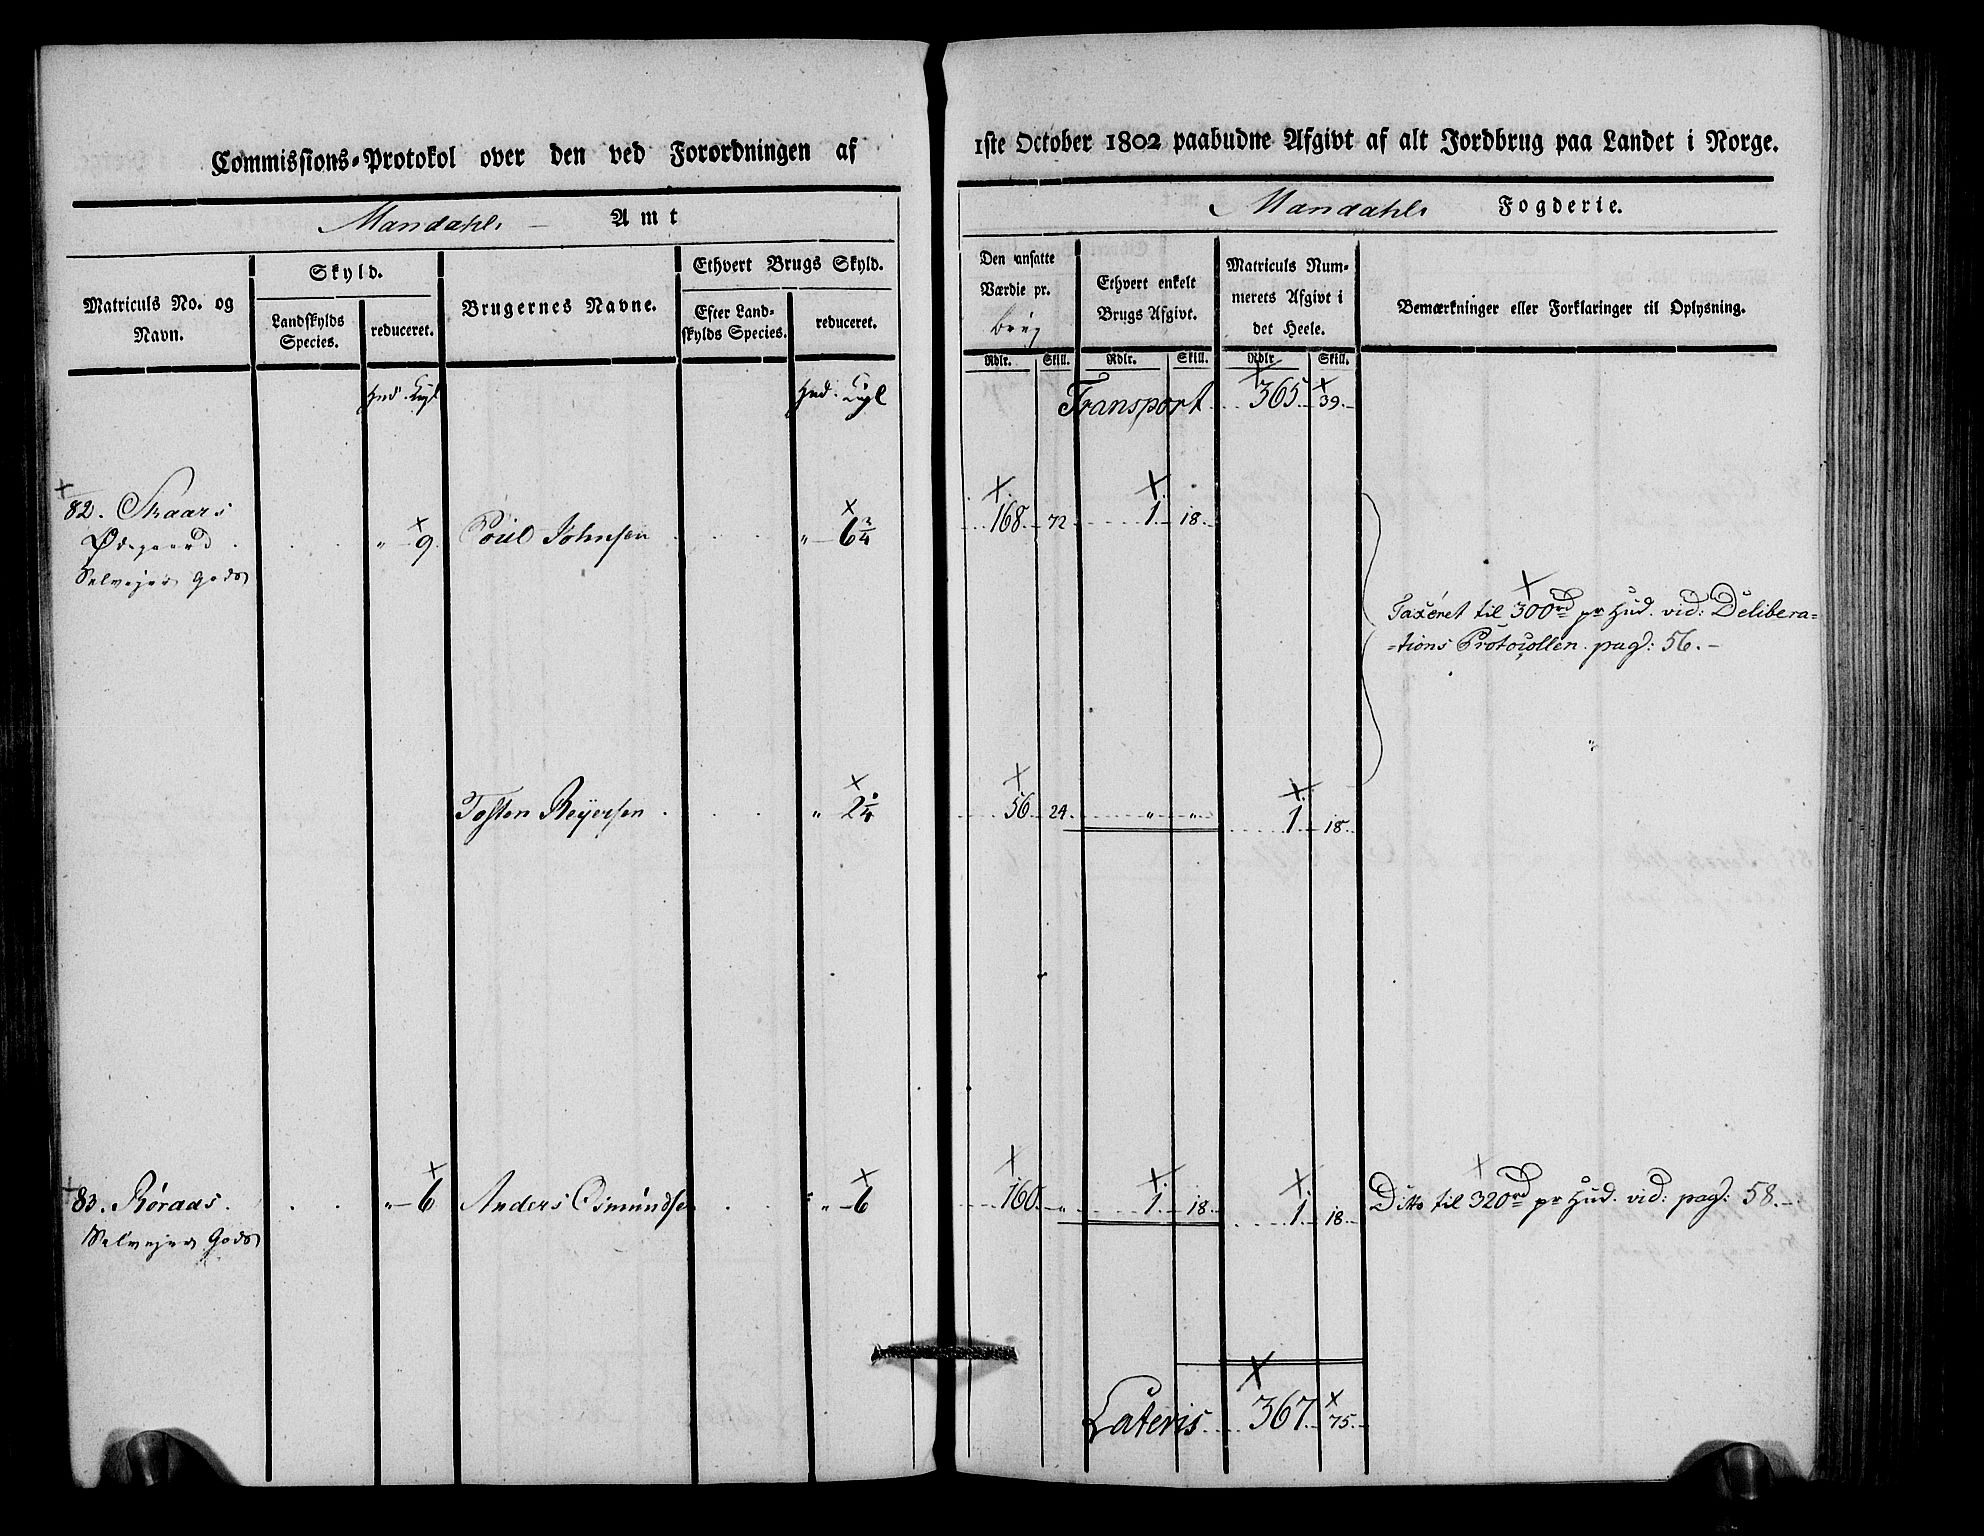 Commissions-Protokol over den ved Forordningen af 1ste October 1802 paabudne Afgivt af alt Jordbrug paa Landet i Norge.
Mandahls Amt
Mandahls Fogderie.
Matriculs No. og Navn.
Skyld.
Landskylds Species.
reduceret.
Brugernes Navne.
Ethvert Brugs Skyld.
Efter Landskylds Species.
reduceret.
Den ansatte Værdie pr. Brug
Ethvert enkelt Brugs Afgivt.
Matriculs Nummerets Afgivt i det Heele.
Bemærkninger eller Forklaringer til Oplysning.
Rdlr. Skill. Rdlr. Skill. Rdlr Skill.
Hud. Kugl Hud. Kugl Transport 365. 39.
82. Skaars
Ødegaard „ 9. Poul Johnsen „ 6 3/4 168. 72. 1. 18.
Selvejer Gods
Taxeret til 300rd pr Hud. vid: Delibera=
=tions Protocollen. pag: 56.
Tosten Reyersen „ 2 1/4 56. 24. „ „ 1. 18.
83. Røraas. „ 6 Anders Osmundsen „ 6 160. „ 1. 18. 1. 18. Ditto til 320rd pr Hud. vid: pag: 58.
Selvejer Gods
Lateris 367. 75.